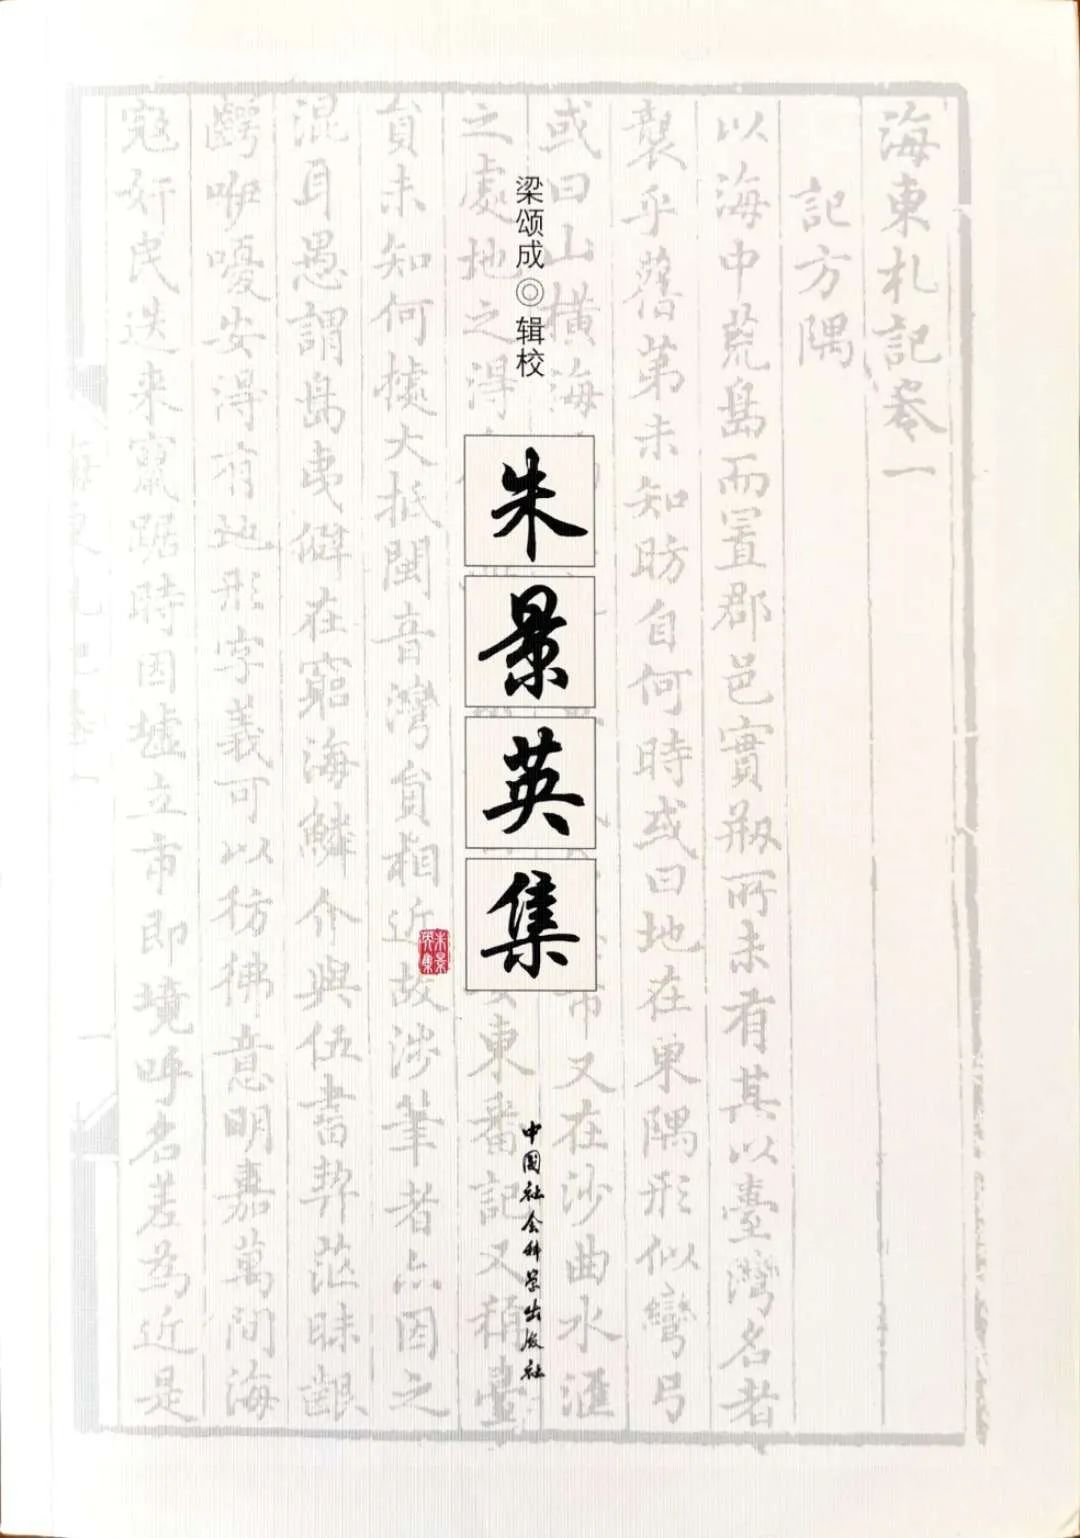 梁颂成◎辑校
朱景英集
朱景英集
中国社会科学出版社
海東札記卷一
記方隅
以海中荒島而置郡邑實剏所未有其以臺灣名者
襲乎舊第未知昉自何時或曰地在東隅形似彎弓
或曰山橫海 市又在沙曲水滙
之處地之得 東番記又稱臺
員未知何據大抵閩音灣員相近故涉筆者亦因之
混耳愚謂島夷僻在窮海鱗介與伍書契茫昧齦
齶咿嚘安得有地形字義可以彷彿意明嘉萬間海
寇奸民迭来竄踞時因墟立市即境呼名差為近是